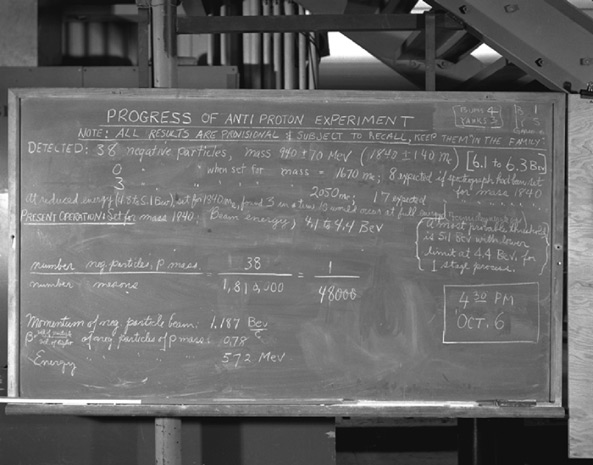 PROGRESS OF ANTIPROTON EXPERIMENT
BUMS 4
YANKS 3
NOTE: ALL RESULTS ARE PROVISIONAL & SUBJECT TO RECALL, KEEP THEM "IN THE FAMILY"
DETECTED: 38 negative particles, mass 940 ± 70 MeV (1840 ± 140 me) [6.1 to 6.3 Bev]
0 " " when set for mass = 1670 me; 8 expected if spectrograph had been set for mass 1840
3 " " " " 2050 me; 17 expected " " " "
At reduced energy (4.8 to 5.1 Bev) set for 1840 me, found 3 in a time 10 would occur at full energy
PRESENT OPERATION: Set for mass 1840. Beam energy, 4.1 to 4.4 BeV
Almost probable threshold
is 5.1 Bev with lower
limit at 4.4 Bev. for
1 stage process.
number neg. particles, P mass = 38 = 1
number mesons 1,810,000 48000
4 30 PM
OCT. 6
Momentum of neg. particle beam: 1.187 Bev/c
β of neg. particles of P mass: 0.78
Energy " " " 572 MeV